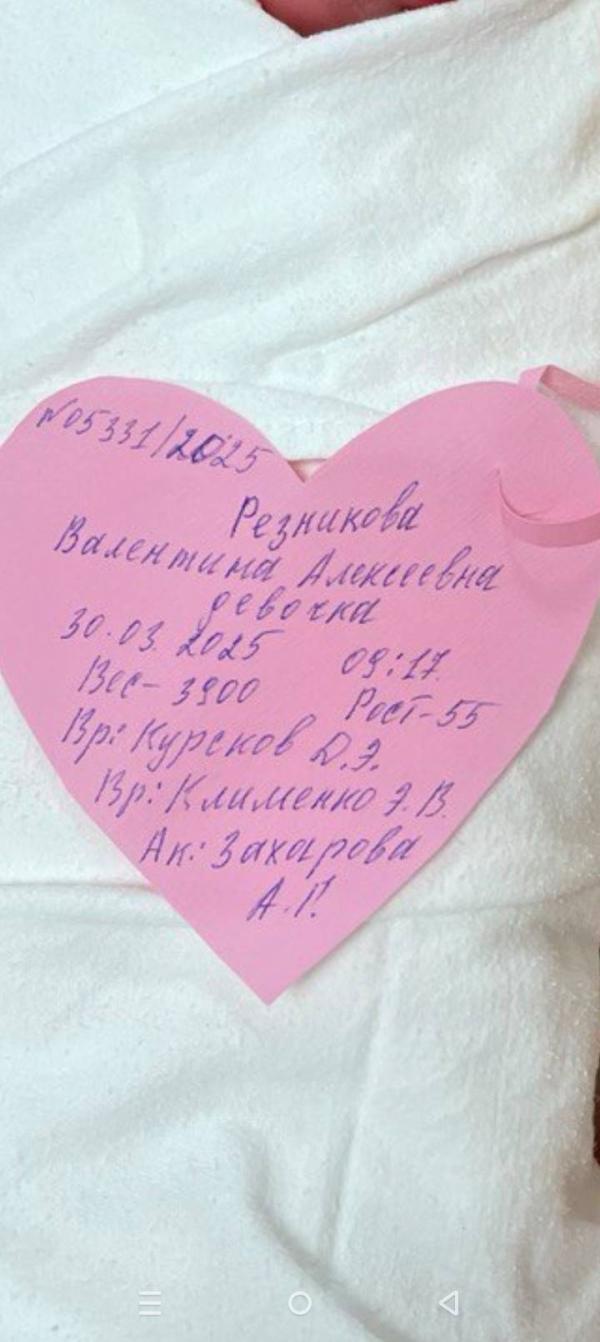 №05331/2025
Резникова
Валентина Алексеевна
девочка
30.03.2025 09:17
Вес- 3900 Рост-55
Вр: Курсков Д.Э.
Вр: Клименко Э.В.
Ак: Захарова
А.Г.